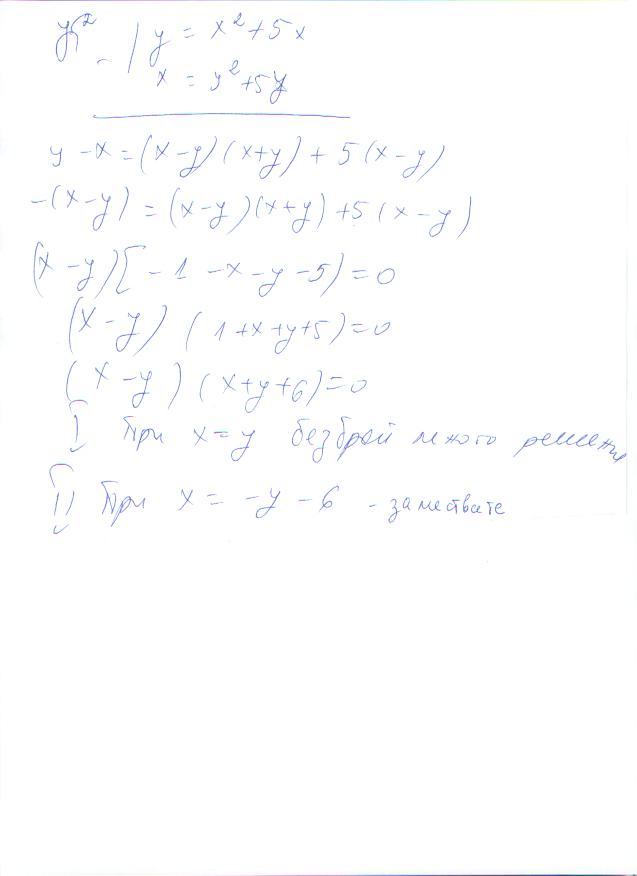 y = x² + 5x
x = y² + 5y
y - x = (x - y)(x + y) + 5(x - y)
-(x - y) = (x - y)(x + y) + 5(x - y)
(x - y)[-1 - x - y - 5) = 0
(x - y) (1 + x + y + 5) = 0
(x - y) (x + y + 6) = 0
I При x = y безброй много решения
II При x = -y - 6 - замествате